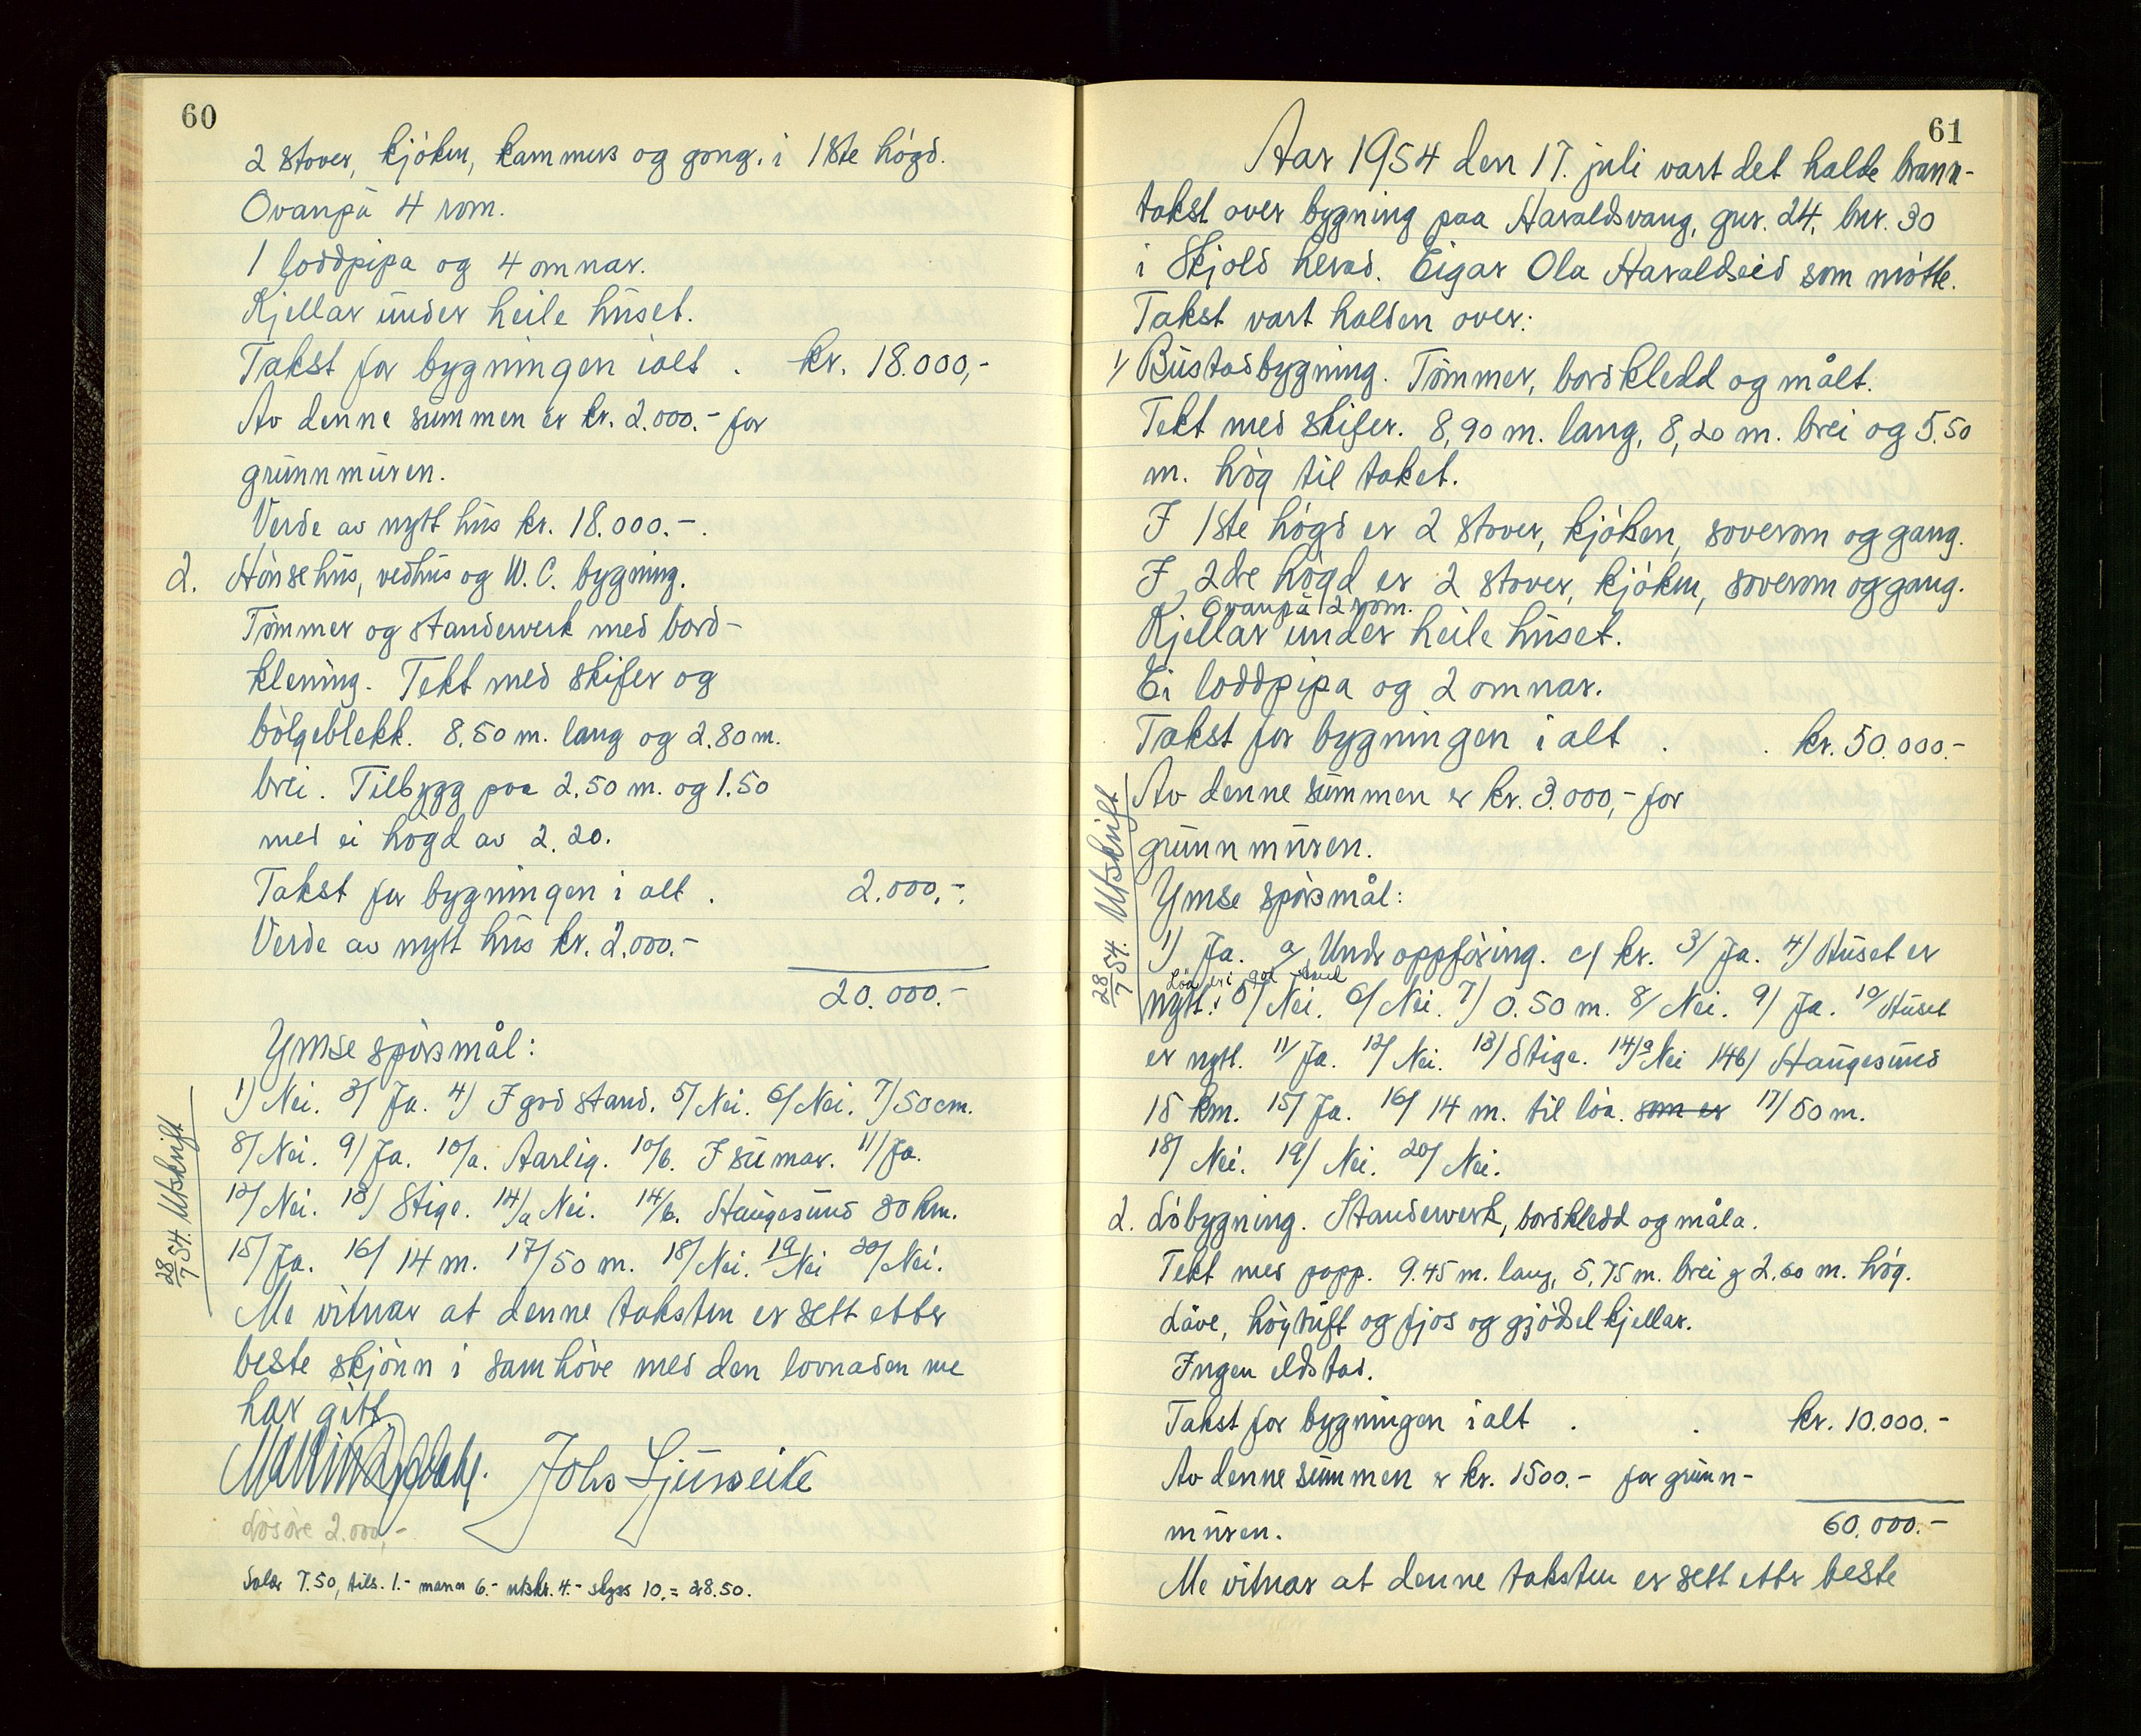 60
2 stover, kjóken, kammers og gong. i 1ste högd.
Ovanpå 4 rom.
1 loddpipa og 4 omnar.
Kjellar under heile huset.
Takst for bygningen ialt . kr. 18.000,-
Av denne summen er kr. 2.000.- for
grunnmuren.
Verde av nytt hus kr. 18.000.-.
2. Hönsehus, vedhus og W. C. bygning.
Tömmer og standerverk med bord-
klening. Tekt med skifer og
bölgeblekk. 8.50 m. lang og 2.80 m.
brei. Tilbygg paa 2.50 m. og 1.50
med ei högd av 2.20.
Takst for bygningen i alt . 2.000.-.
Verde av nytt hus kr. 2.000.-
20.000.-
Ymse spörsmål:
1) Nei. 3/ Ja. 4) I god stand. 5/ Nei. 6/ Nei. 7/ 50 cm.
8/ Nei. 9/ Ja. 10/a. Aarlig. 10/b. I sumar. 11/ Ja.
12/ Nei. 13/ Stige. 14/a Nei. 14/b. Haugesund 30 km.
15/ Ja. 16/ 14 m. 17/ 50 m. 18/ Nei. 19/ Nei 20/ Nei.
28/7 54. Utskrift
Me vitnar at denne taksten er sett etter
beste skjönn i samhöve med den lovnaden me
har gitt.
Johs Ljusveite
Lösöre 2.000,-
Salær 7.50, tils. 1.- mann 6.- utskr. 4.- skyss 10.= 28.50.
61
Aar 1954 den 17. juli vart det halde brann-
takst over bygning paa Haraldsvang, gnr. 24, bnr. 30
i Skjold herad. Eigar Ola Haraldseid som mötte.
Takst vart halden over:
1/ Bustadbygning. Tömmer, bordkledd og målt.
Tekt med skifer. 8,90 m. lang, 8,20 m. brei og 5.50
m. hög til taket.
I 1ste högd er 2 stover, kjöken, soverom og gang.
I 2dre högd er 2 stover, kjöken, soverom og gang.
Ovanpå 2 rom.
Kjellar under heile huset.
Ei loddpipa og 2 omnar.
Takst for bygningen i alt . . kr. 50.000.-
Av denne summen er kr. 3.000,- for
grunnmuren.
28/7 54. Utskrift
Ymse spörsmål:
1) Ja. a/ Undr oppföring. c/ kr. 3/ Ja. 4/ Huset er
Löa er i god stand
nytt. 5/ Nei. 6/ Nei. 7) 0.50 m. 8/ Nei. 9/ Ja. 10/ Huset
er nytt. 11/ Ja. 12/ Nei. 13/ Stige. 14/a Nei 14b/ Haugesund
15 km. 15/ Ja. 16/ 14 m. til löa. som er 17/ 50 m.
18/ Nei. 19/ Nei. 20/ Nei.
2. Löbygning. Standerverk, bordkledd og måla.
Tekt med papp. 9.45 m. lang, 5,75 m. brei og 2.60 m. hög.
Låve, höytuft og fjos og gjödselkjellar.
Ingen eldstad.
Takst for bygningen ialt . . kr. 10.000.-
Av denne summen er kr. 1500.- for grunn-
muren. 60.000.-
Me vitnar at denne taksten er sett etter beste